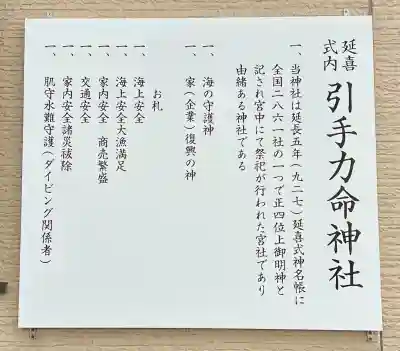 延喜式内 引手力命神社
一、当神社は延長五年(九二七)延喜式神名帳に
全国二八六一社の一つで正四位上御明神と
記され宮中にて祭祀が行われた宮社であり
由緒ある神社である
一、海の守護神
一、家(企業)復興の神
お札
一、海上安全
一、海上安全大漁満足
一、家内安全 商売繁盛
一、交通安全
一、家内安全諸災祓除
一、肌守水難守護(ダイビング関係者)